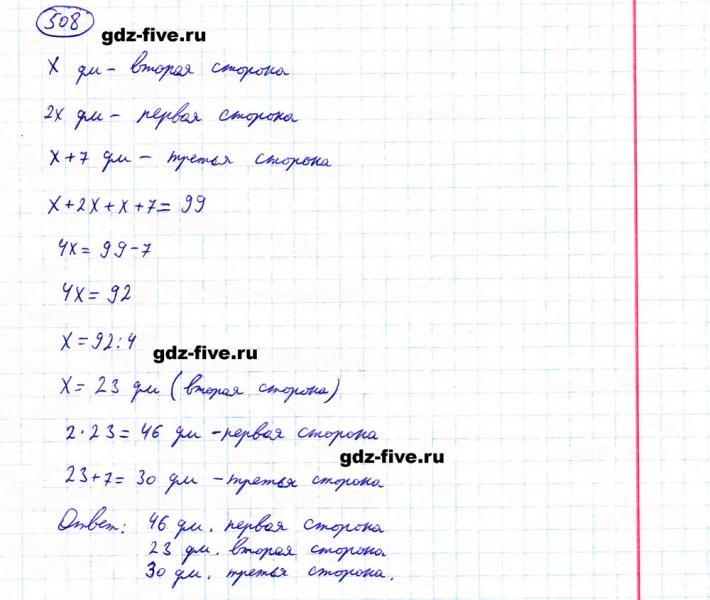 508
gdz-five.ru
x дм - вторая сторона
2x дм - первая сторона
x+7 дм - третья сторона
x+2x+x+7=99
4x=99-7
4x=92
x=92:4
gdz-five.ru
x=23 дм (вторая сторона)
2·23=46 дм - первая сторона
gdz-five.ru
23+7=30 дм - третья сторона
Ответ: 46 дм. первая сторона
23 дм. вторая сторона
30 дм. третья сторона.